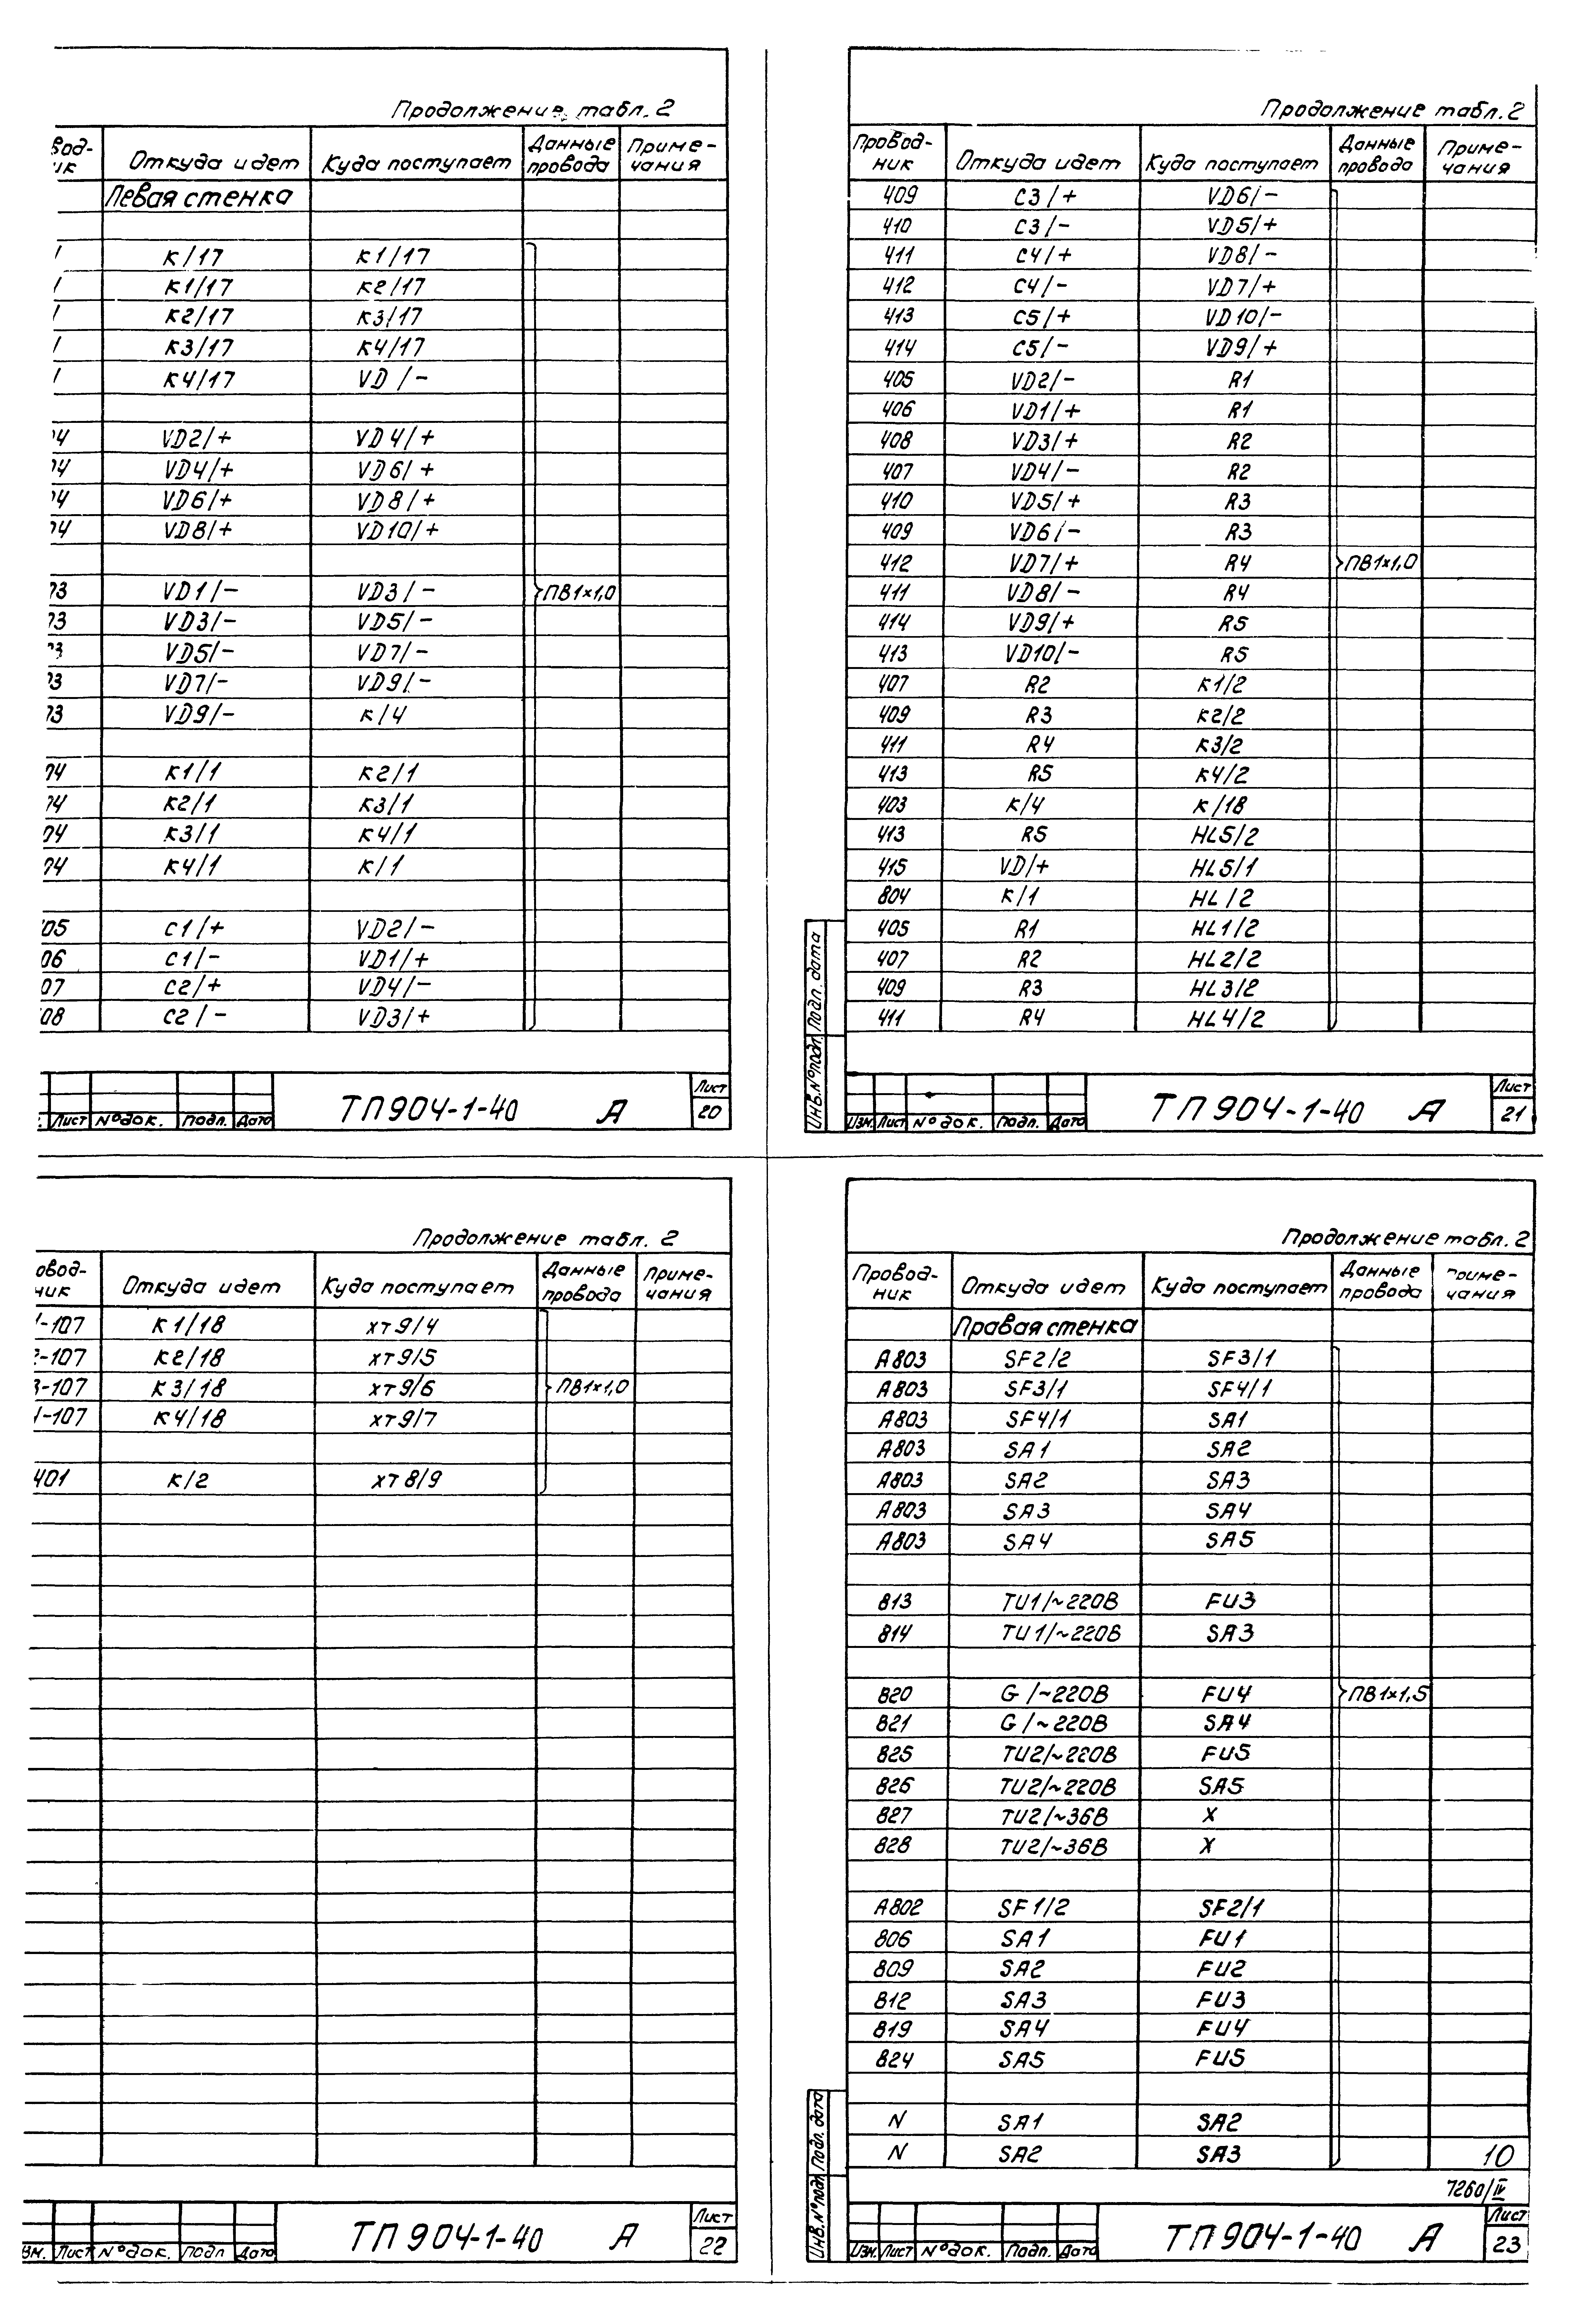 Продолжение табл. 2
вод- Откуда идет Куда поступает Данные Приме-
ик провода чания
Левая стенка
К/17 К1/17
К1/17 К2/17
К2/17 К3/17
К3/17 К4/17
К4/17 VD/-
04 VD2/+ VD4/+
04 VD4/+ VD6/+
04 VD6/+ VD8/+
04 VD8/+ VD10/+
03 VD1/- VD3/- ПВ1×1,0
03 VD3/- VD5/-
03 VD5/- VD7/-
03 VD7/- VD9/-
03 VD9/- К/4
04 К1/1 К2/1
04 К2/1 К3/1
04 К3/1 К4/1
04 К4/1 К/1
05 С1/+ VD2/-
06 С1/- VD1/+
07 С2/+ VD4/-
08 С2/- VD3/+
Лист № док. Подп. Дата ТП 904-1-40 А Лист 20
Продолжение табл. 2
Провод- Откуда идет Куда поступает Данные Приме-
ник провода чания
409 С3/+ VD6/-
410 С3/- VD5/+
411 С4/+ VD8/-
412 С4/- VD7/+
413 С5/+ VD10/-
414 С5/- VD9/+
405 VD2/- R1
406 VD1/+ R1
408 VD3/+ R2
407 VD4/- R2
410 VD5/+ R3
409 VD6/- R3
412 VD7/+ R4 ПВ1×1,0
411 VD8/- R4
414 VD9/+ R5
413 VD10/- R5
407 R2 К1/2
409 R3 К2/2
411 R4 К3/2
413 R5 К4/2
403 К/4 К/18
413 R5 HL5/2
415 VD/+ HL5/1
804 К/1 HL/2
405 R1 HL1/2
407 R2 HL2/2
409 R3 HL3/2
411 R4 HL4/2
Инв. № подл. Подп. дата
Изм. Лист № док. Подп. Дата ТП 904-1-40 А Лист 21
Продолжение табл. 2
овод- Откуда идет Куда поступает Данные Приме-
ник провода чания
-107 К1/18 ХТ9/4
-107 К2/18 ХТ9/5
-107 К3/18 ХТ9/6 ПВ1×1,0
-107 К4/18 ХТ9/7
401 К/2 ХТ8/9
зм. Лист № док. Подп Дата ТП 904-1-40 А Лист 22
Продолжение табл. 2
Провод- Откуда идет Куда поступает Данные Приме-
ник провода чания
Правая стенка
А803 SF2/2 SF3/1
А803 SF3/1 SF4/1
А803 SF4/1 SA1
А803 SA1 SA2
А803 SA2 SA3
А803 SA3 SA4
А803 SA4 SA5
813 TU1/~220В FU3
814 TU1/~220В SA3
820 G/~220В FU4 ПВ1×1,5
821 G/~220В SA4
825 TU2/~220В FU5
826 TU2/~220В SA5
827 TU2/~36В X
828 TU2/~36В X
А802 SF1/2 SF2/1
806 SA1 FU1
809 SA2 FU2
812 SA3 FU3
819 SA4 FU4
824 SA5 FU5
N SA1 SA2
N SA2 SA3
10
7260/IV
Инв. № подл. Подп. дата
Изм. Лист № док. Подп. Дата ТП 904-1-40 А Лист 23